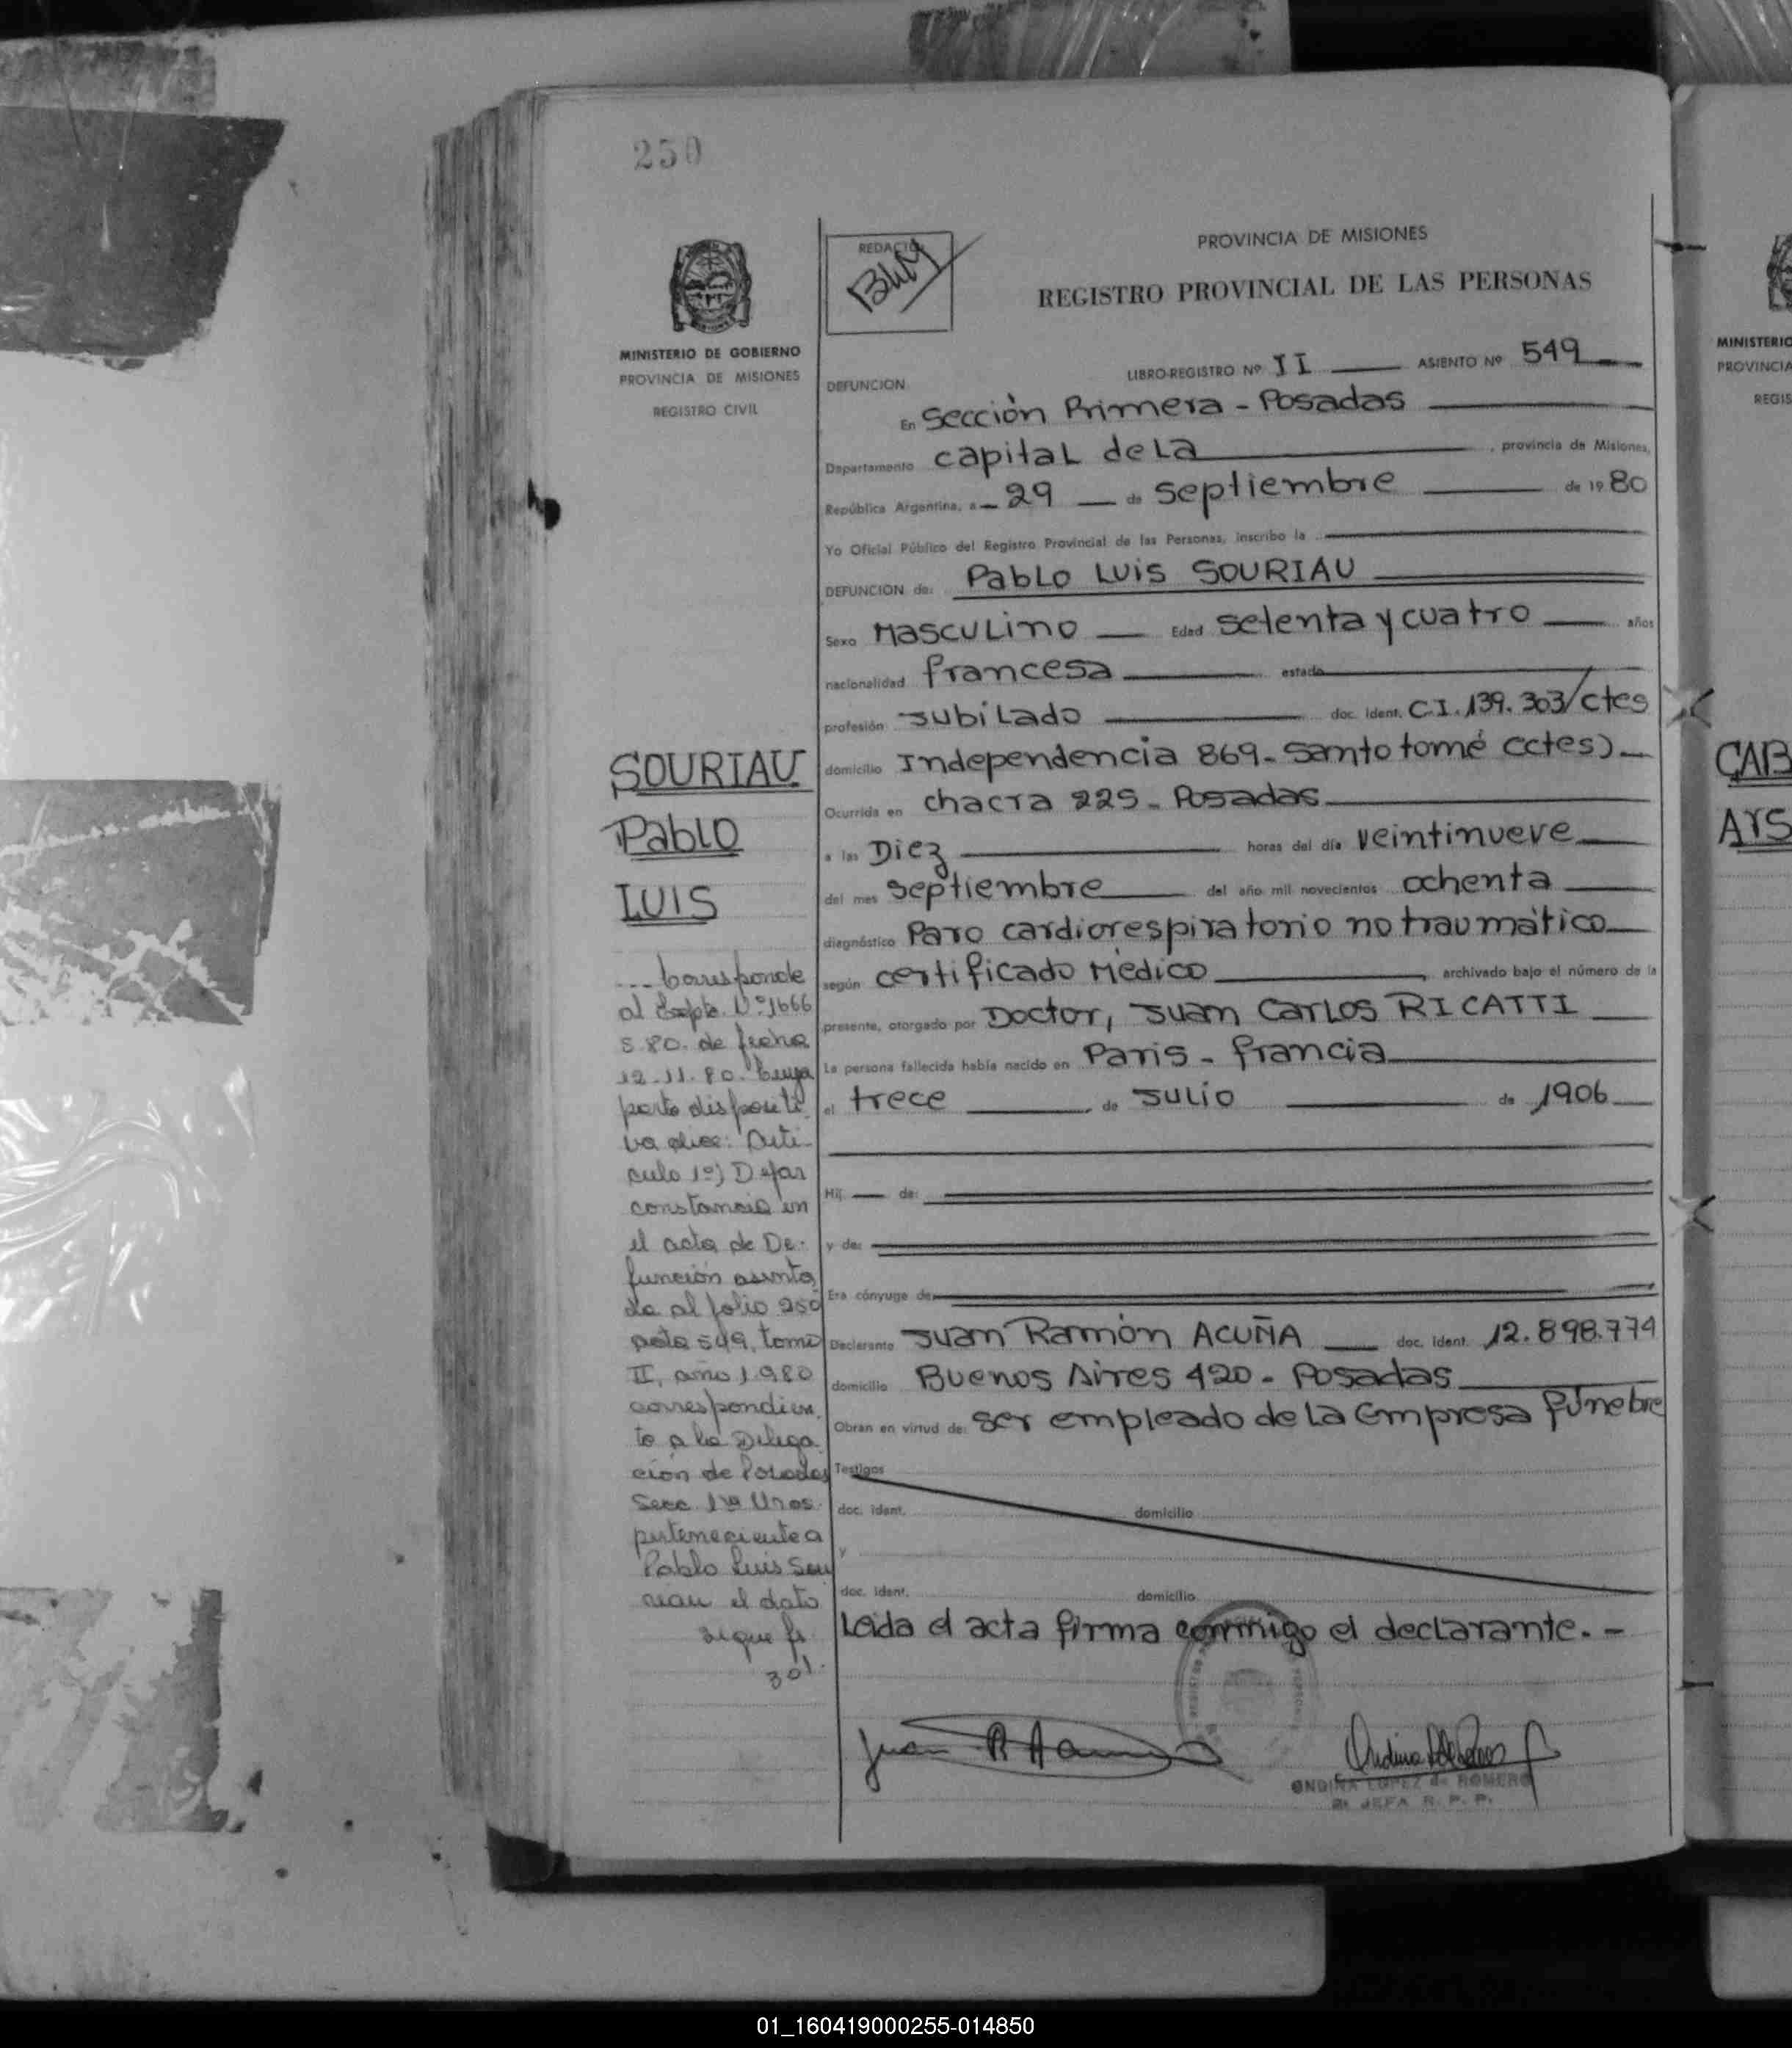 250
MINISTERIO DE GOBIERNO
PROVINCIA DE MISIONES
REGISTRO CIVIL
PROVINCIA DE MISIONES
REGISTRO PROVINCIAL DE LAS PERSONAS
LIBRO-REGISTRO Nº II ASIENTO Nº 549
DEFUNCION
En Sección Primera - Posadas
Departamento capital de La, provincia de Misiones,
República Argentina, a 29 de septiembre de 1980
Yo Oficial Público del Registro Provincial de las Personas, inscribo la
DEFUNCION de: Pablo Luis SOURIAU
Sexo Masculino Edad setenta y cuatro años
nacionalidad francesa estado
profesión Jubilado doc. ident. C.I. 139.303/ctes
domicilio Independencia 869 - Santo tomé (ctes)
Ocurrida en chacra 225 - Posadas
a las Diez horas del día veintinueve
del mes septiembre del año mil novecientos ochenta
diagnóstico Paro cardiorespiratorio no traumático
según certificado Médico archivado bajo el número de la
presente, otorgado por Doctor, Juan Carlos RICATTI
La persona fallecida había nacido en Paris - francia
el trece de Julio de 1906
Hij de:
y de:
Era cónyuge de
Declarante Juan Ramón ACUÑA doc. ident. 12.898.774
domicilio Buenos Aires 420 - Posadas
Obran en virtud de: ser empleado de La Empresa fúnebre
Testigos
doc. ident. domicilio
y
doc. ident. domicilio
Leida el acta firma conmigo el declarante. -
ONDINA LOPEZ de ROMERO
2ª JEFA R. P. P.
SOURIAU
Pablo
LUIS
... Corresponde
al Expte. Nº 1666
S 80. de fecha
12-11-80. Cuya
parte dispositi-
va dice: Artí-
culo 1º) Dejar
constancia en
el acta de De-
función asenta
da al folio 250
acta 549, tomo
II, año 1980
correspondien
te a la Delega
ción de Posadas
Secc. 1ra
perteneciente a
Pablo Luis Sou
riau el dato
sigue fs
301.
MINISTERIO
PROVINCIA
REGIS
CAB
AYS
01_160419000255-014850